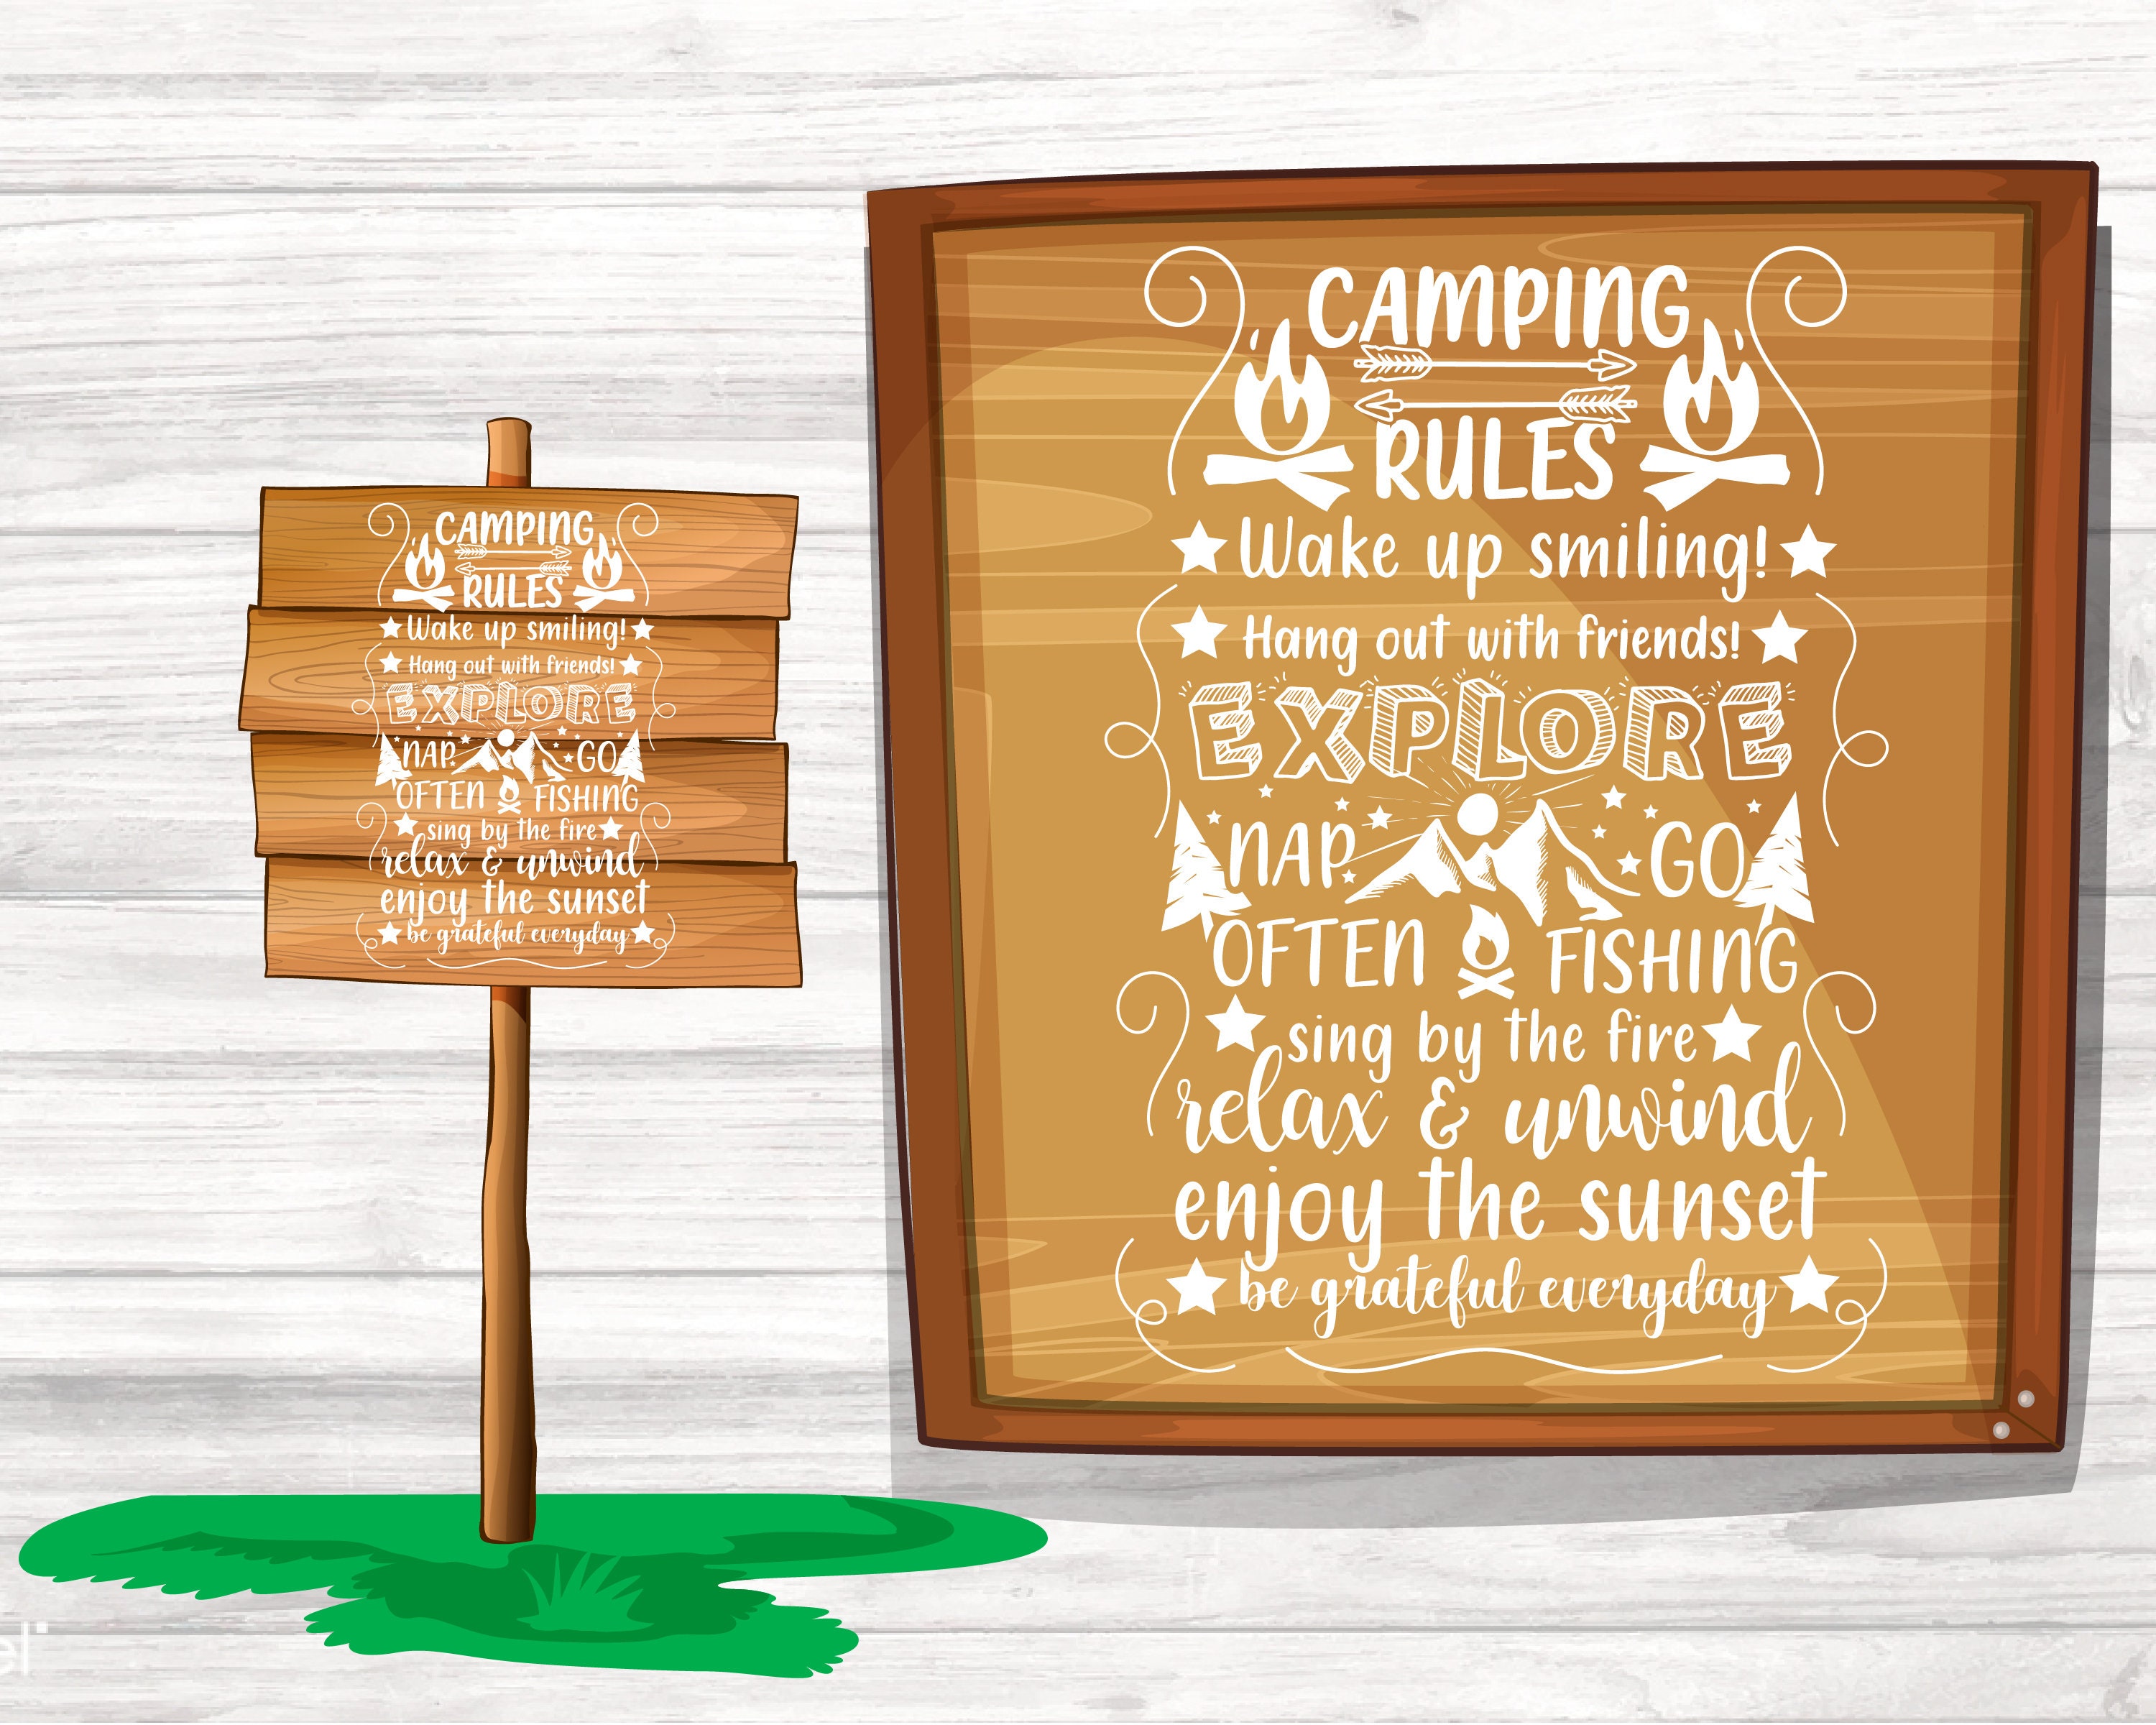 CAMPING
RULES
Wake up smiling!
Hang out with friends!
EXPLORE
NAP GO
OFTEN FISHING
sing by the fire
relax & unwind
enjoy the sunset
be grateful everyday
CAMPING
RULES
Wake up smiling!
Hang out with friends!
EXPLORE
NAP GO
OFTEN FISHING
sing by the fire
relax & unwind
enjoy the sunset
be grateful everyday